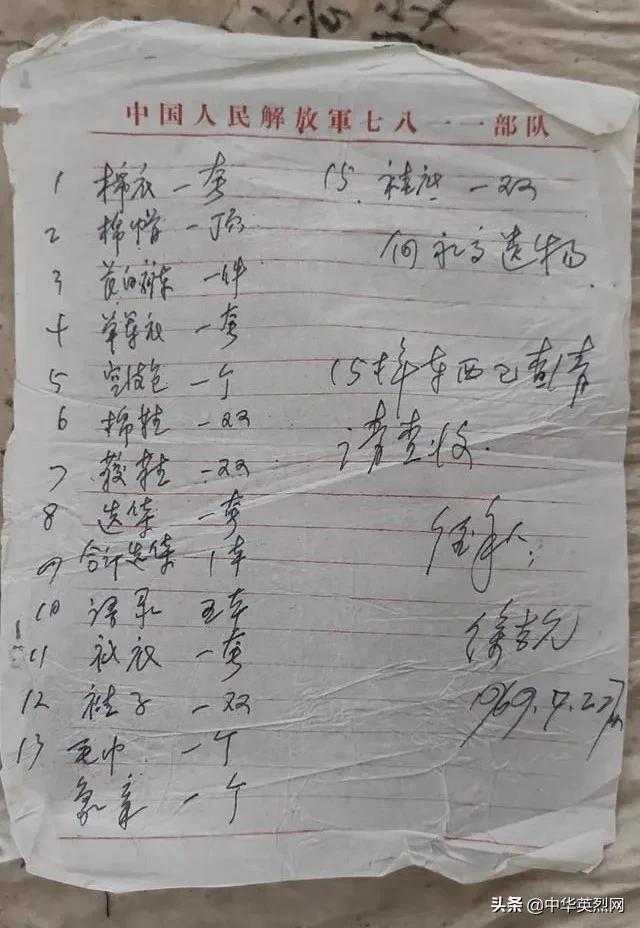 中国人民解放軍七八一一部队
1 棉衣 一套
2 棉帽 一顶
3 一件
4 单军衣 一套
5 挎包 一个
6 棉鞋 一双
7 胶鞋 一双
8 选集 一套
9 合订选集 1本
10 语录 五本
11 衬衣 一套
12 袜子 一双
13 毛巾 一个
象章 一个
15 袜底 一双
何礼方遗物
15样东西已查清
请查收
徐吉元
1969.7.22
头条 @中华英烈网